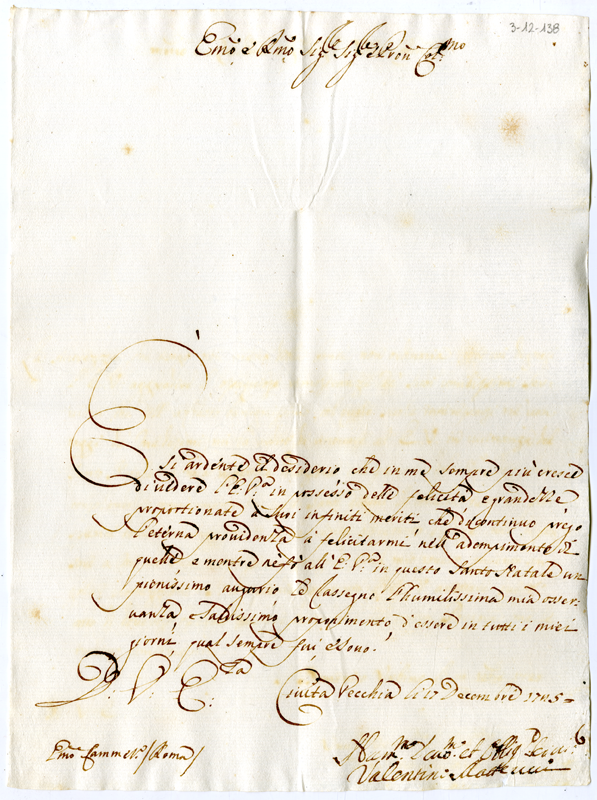 3-12-138
Em̃o e Rm̃o Sig.re Sig.re Pron̄ Col.mo
È si ardente il desiderio che in me sempre più cresce
di vedere l'E. V.ra in possesso delle felicità e grandezze
proportionate a suoi infiniti meriti che di continuo prego
l'eterna providenza à felicitarmi nell'adempimento di
quelle e mentre ne fò all'E. V.ra in questo Santo Natale un
pienissimo augurio Le rassegno l'humilissima mia osser-
vanza e saldissimo proponimento d'essere in tutti i miei
giorni qual sempre fui e sono.
D. V. E.za
Civita Vecchia li 17 Decembre 1725
Em̃o Cammer.o /Roma/
Hum.mo Devo.mo et Oblig.
Valentino Matteucci